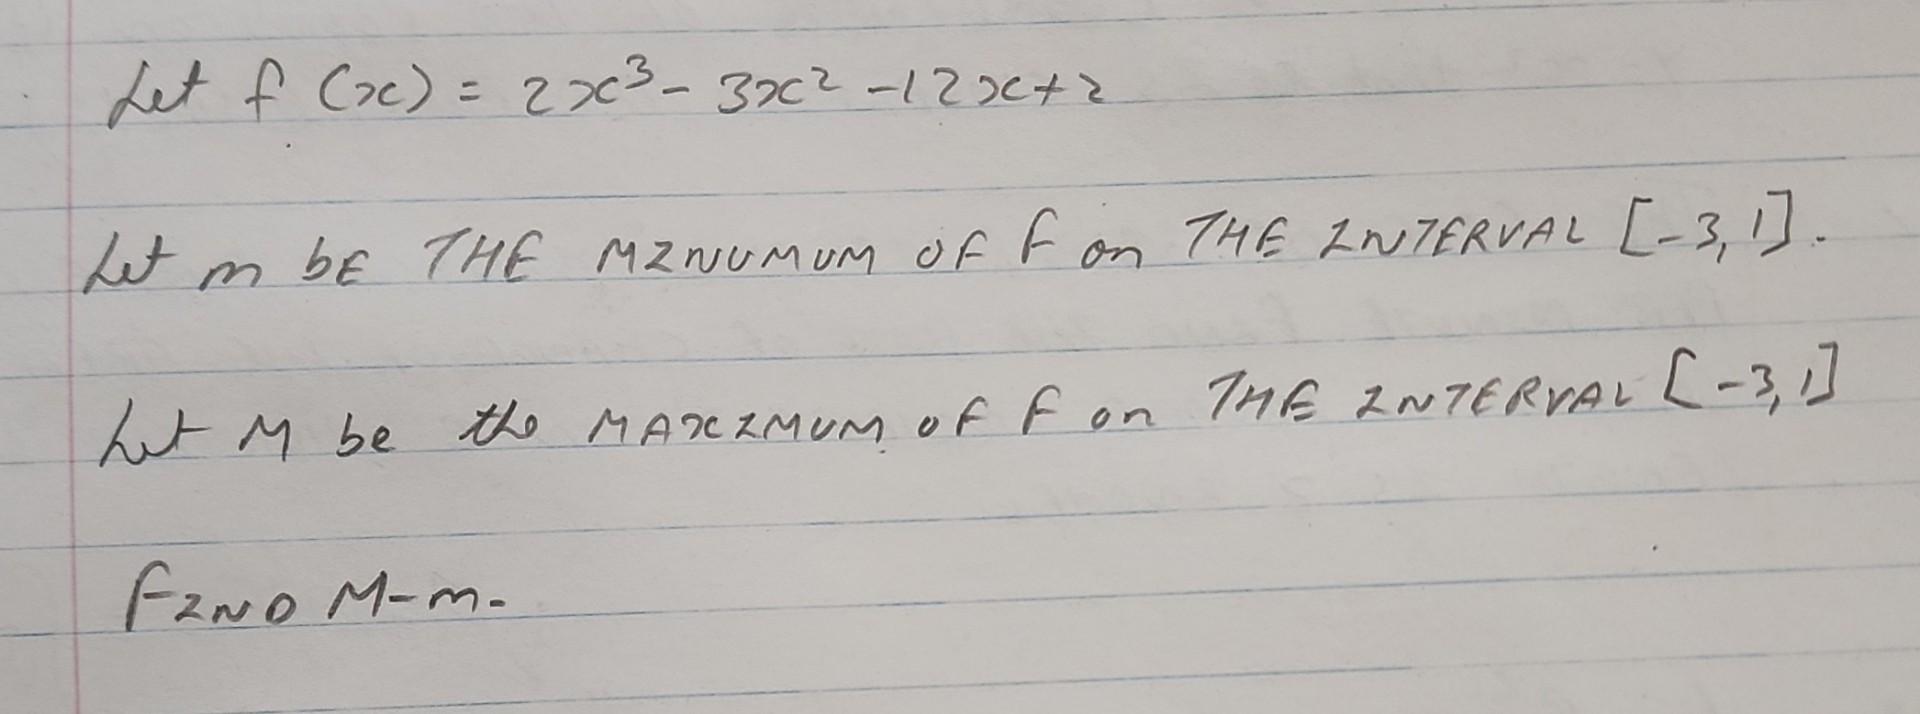 Let f (x) = 2x³ - 3x² - 12x + 2
Let m bE THE MINUMUM OF f on THE INTERVAL [-3, 1].
Let M be the MAXIMUM OF f on THE INTERVAL [-3, 1]
FIND M-m.